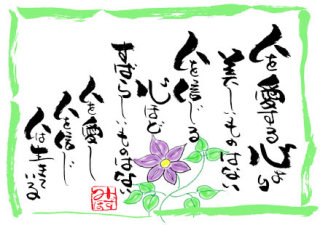 人を愛する心ほど
美しいものはない
人を信じる
心ほど
すばらしいものはない
人を愛し
人を信じ
人は生きている